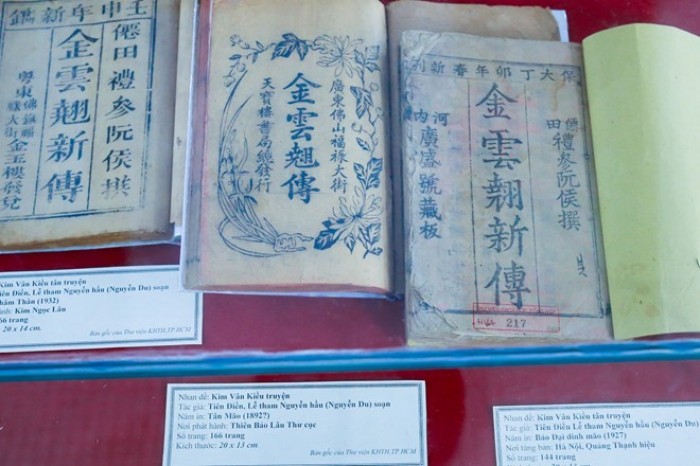 壬申年新鐫
僊田禮參阮侯撰
金雲翹新傳
粵東佛鎮福祿大街金玉樓發兌
廣東佛山福祿大街
金雲翹傳
天寶樓書局總發行
保大丁卯年春新刊
僊田禮參阮侯撰
金雲翹新傳
河内廣盛號藏板
217
Kim Vân Kiều tân truyện
Tiên Điền, Lễ tham Nguyễn hầu (Nguyễn Du) soạn
Thân (1932)
Kim Ngọc Lâu
66 trang
20 x 14 cm.
Bản gốc của Thư viện KHTH.TP HCM
Nhan đề: Kim Vân Kiều truyện
Tác giả: Tiên Điền, Lễ tham Nguyễn hầu (Nguyễn Du) soạn
Năm in: Tân Mão (1892?)
Nơi phát hành: Thiên Bảo Lâu Thư cục
Số trang: 166 trang
Kích thước: 20 x 13 cm
Bản gốc của Thư viện KHTH.TP HCM
Nhan đề: Kim Vân Kiều tân truyện
Tác giả: Tiên Điền, Lễ tham Nguyễn hầu (Nguyễn Du)
Năm in: Bảo Đại đinh mão (1927)
Nơi tàng bản: Hà Nội, Quảng Thạnh hiệu
Số trang: 144 trang